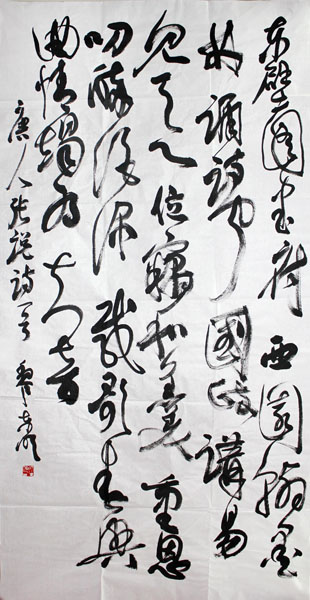 东壁图书府西园翰墨
林诵诗闻国政讲易
见天心位窃和羹重恩
叨醉酒深载歌春兴
曲情竭为知音
唐人张说诗一首